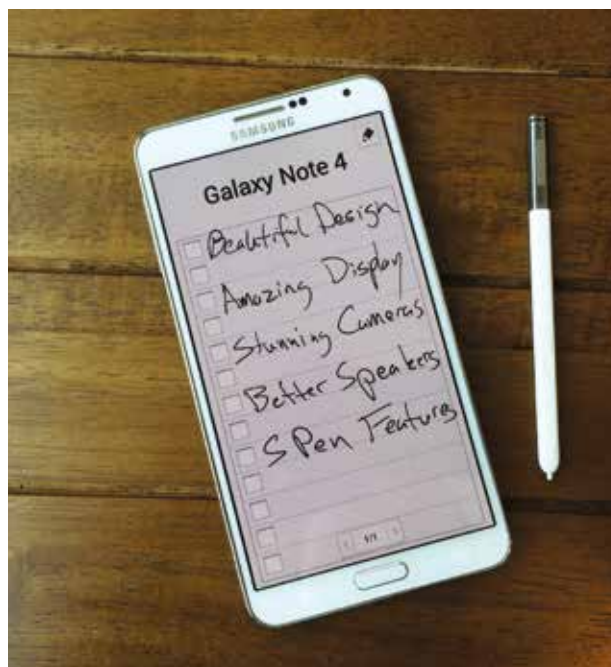 SAMSUNG
Galaxy Note 4
Beautiful Design
Amazing Display
Stunning Cameras
Better Speakers
S Pen Features
1/1